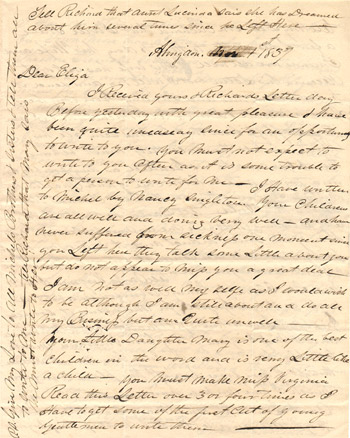 Tell Richard that Aunt Lucinda Sais she has Dreamed
about him several times since he Left Here
Abugdon 1857
Dear Eliza
I Received yours & Richards Letter day
Before yesterday with great pleasure I have
been quite uneaseay since for an opportunity
to write to you. You Must not expect to
write to you often as it is some trouble to
get a person to write for me — I have written
to Michel by Nancy Singleton Your Children
are all well and doing very well — and have
never suffered from sickness one moment since
you Left here they talk some Little about you
but do not appear to miss you a great deal
I am not as well my self as I would wish
to be although I am still about and do all
my but am Quite unwell
Your Little Daughter Mary is one of the best
Children in the word and is very Little like
a child — You Must make miss Virginia
Read this Letter over 3 or four times as I
Have to get some of the first Art of young
Gentlemen to write them
Give My Love to All Michels Brothers & Sisters, tell them all
to write to Me — tell that Mary Sais